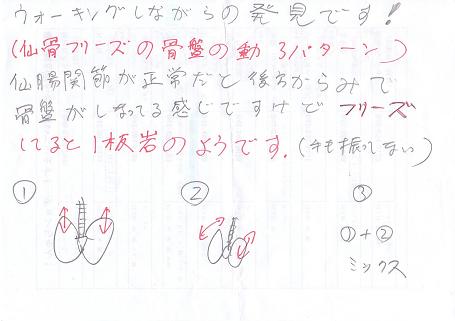 ウォーキングしながらの発見です!
(仙骨フリーズの骨盤の動 3パターン)
仙腸関節が正常だと後方からみて
骨盤がしなってる感じですけど フリーズ
してると1枚岩のようです。(手も振ってない)
① ② ③
①+②
ミックス